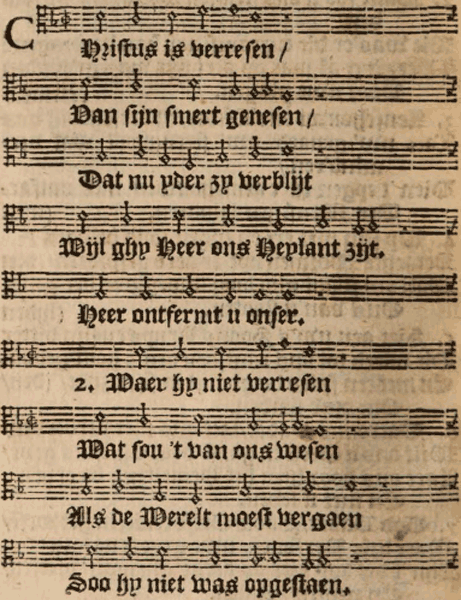 CHristus is verresen /
Van sijn smert genesen /
Dat nu yder zy verblijt
Wijl ghy Heer ons Heylant zijt.
Heer ontfermt u onser.
2. Waer hy niet verresen
Wat sou 't van ons wesen
Als de Werelt moest vergaen
Soo hy niet was opgestaen.